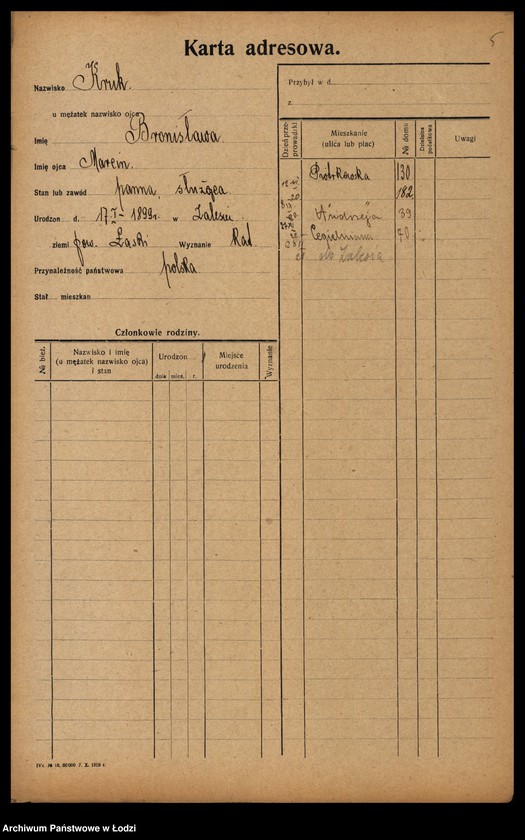 5
Karta adresowa.
Nazwisko Kruk.
u mężatek nazwisko ojca
Imię Bronisława
Imię ojca Marcin.
Stan lub zawód panna, służąca
Urodzon d. 17 I – 1899 r. w Zalesiu.
ziemi pow. Łaski Wyznanie Kat.
Przynależność państwowa polska
Stał mieszkan
Przybył w d.
z
Dzień przeprowadzki
Mieszkanie (ulica lub plac)
№ domu
Dzielnica podatkowa
Uwagi
Piotrkowska 130
182
Andrzeja 39
Cegielniana 70
do Zalesia
Członkowie rodziny.
№ bież.
Nazwisko i imię (u mężatek nazwisko ojca) i stan
Urodzon
dnia mies. r.
Miejsce urodzenia
Wyznanie
Archiwum Państwowe w Łodzi